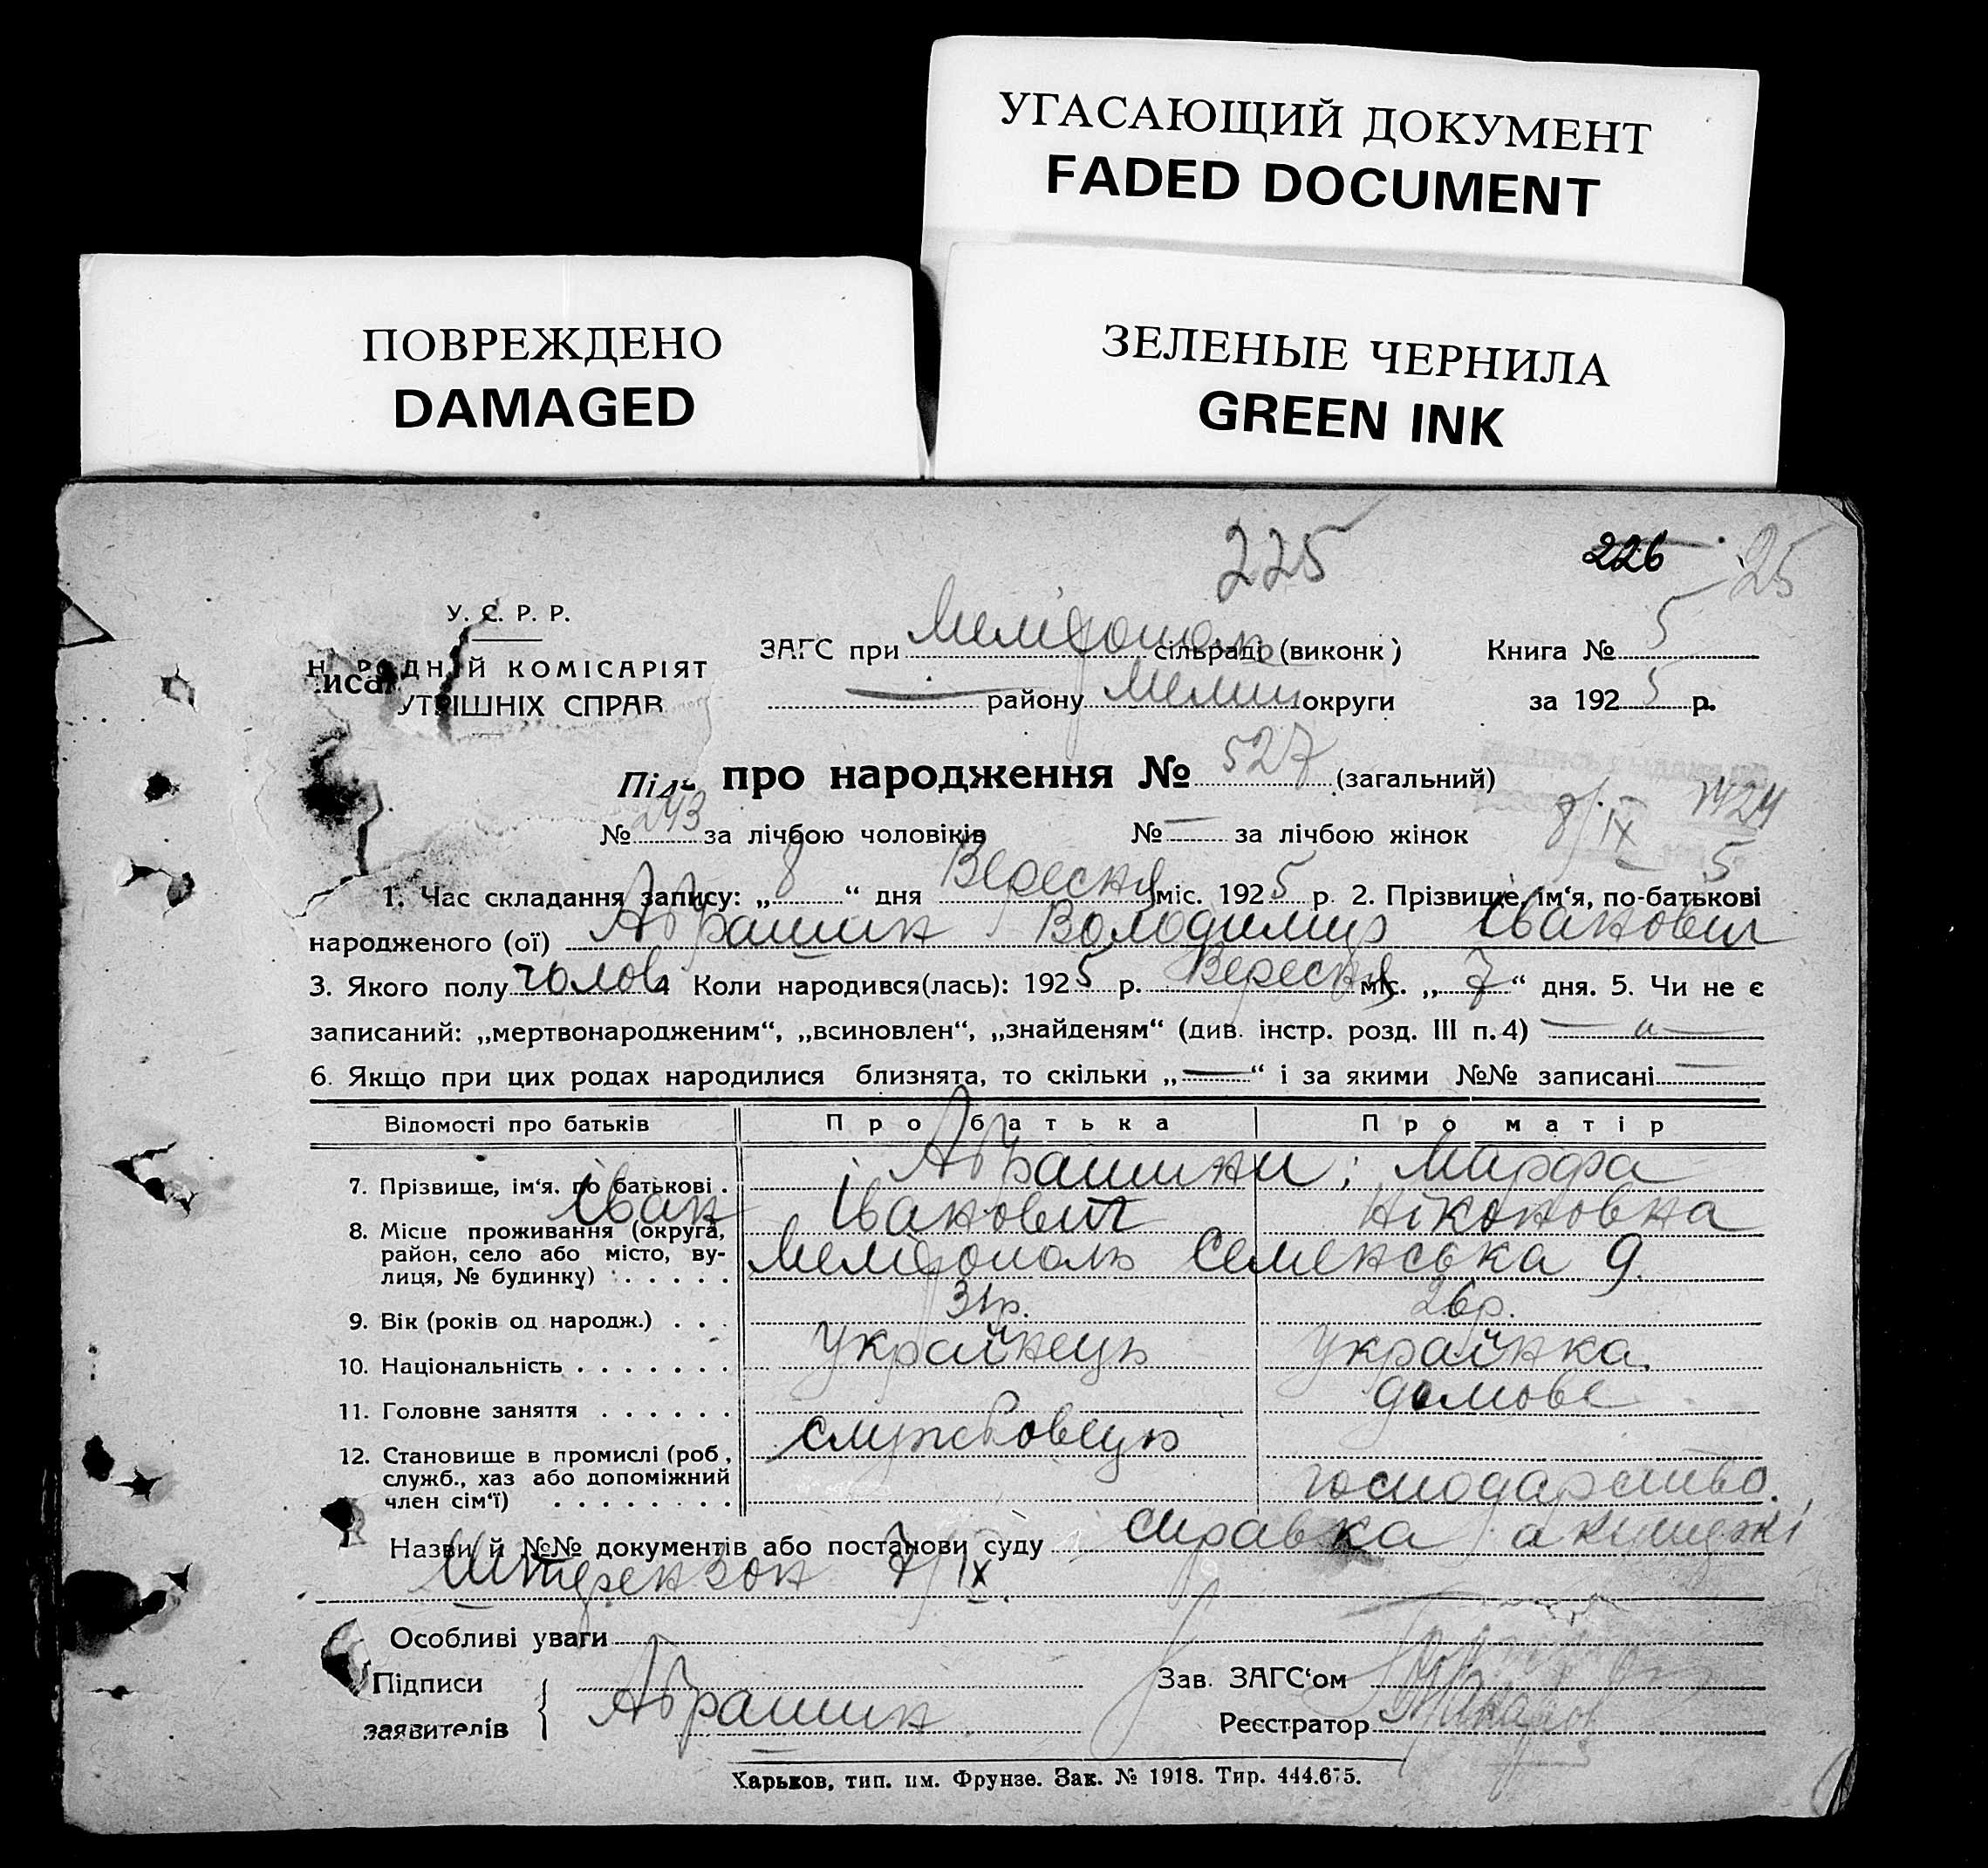 УГАСАЮЩИЙ ДОКУМЕНТ
FADED DOCUMENT
ПОВРЕЖДЕНО
DAMAGED
ЗЕЛЕНЫЕ ЧЕРНИЛА
GREEN INK
225 226 25
У. С. Р. Р.
ЗАГС при Мелітополь сільраді (виконк) Книга № 5
КОМІСАРІЯТ
району Меліт округи за 1925 р.
СПРАВ
про народження № 527 (загальний)
№ 293 за лічбою чоловіків № — за лічбою жінок 8/IX 5
1. Час складання запису: „8“ дня Вересня міс. 1925 р. 2. Прізвище, ім‘я, по-батькові
народженого (ої) Абрашин Володимир Іванович
3. Якого полу чолов. 4 Коли народився(лась): 1925 р. Вересня міс. „7“ дня. 5. Чи не є
записаний: „мертвонародженим“, „всиновлен“, „знайденям“ (див. інстр. розд. III п. 4) —
6. Якщо при цих родах народилися близнята, то скільки „—“ і за якими №№ записані —
Відомості про батьків Про батька Про матір
7. Прізвище, ім‘я. по батькові . Абрашини; Марфа
Іван Іванович Ніконовна
8. Місце проживання (округа, район, село або місто, вулиця, № будинку) . . . . . Мелітополь Семенська 9.
9. Вік (років од народж.) . . . 31р. 26р.
10. Національність . . . . . . . українець українка.
11. Головне заняття . . . . . . домове
12. Становище в промислі (роб., служб., хаз або допоміжний член сім‘ї) . . . . . . . . службовець господарство.
Назви й №№ документів або постанови суду справка акушерки
7/IX.
Особливі уваги
Підписи заявителів Абрашин
Зав. ЗАГС‘ом
Реєстратор
Харьков, тип. им. Фрунзе. Зак. № 1918. Тир. 444.675.